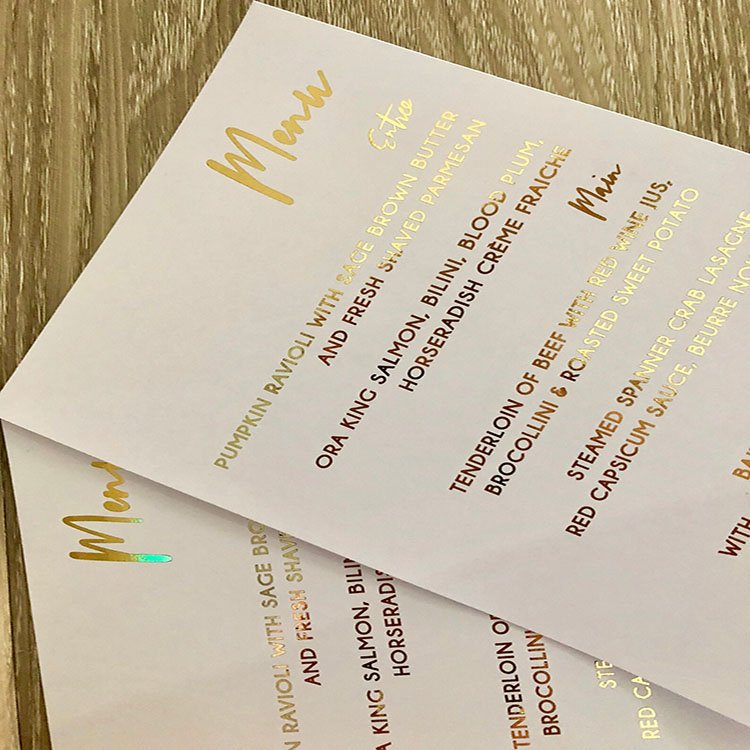 Menu
Entree
PUMPKIN RAVIOLI WITH SAGE BROWN BUTTER
AND FRESH SHAVED PARMESAN
ORA KING SALMON, BILINI, BLOOD PLUM,
HORSERADISH CRÈME FRAICHE
Main
TENDERLOIN OF BEEF WITH RED WINE JUS,
BROCOLLINI & ROASTED SWEET POTATO
STEAMED SPANNER CRAB LASAGNE
RED CAPSICUM SAUCE, BEURRE
WITH
Menu
PUMPKIN RAVIOLI WITH SAGE
AND FRESH
ORA KING SALMON,
HORSERADISH
TENDERLOIN
BROCOLLINI
RED